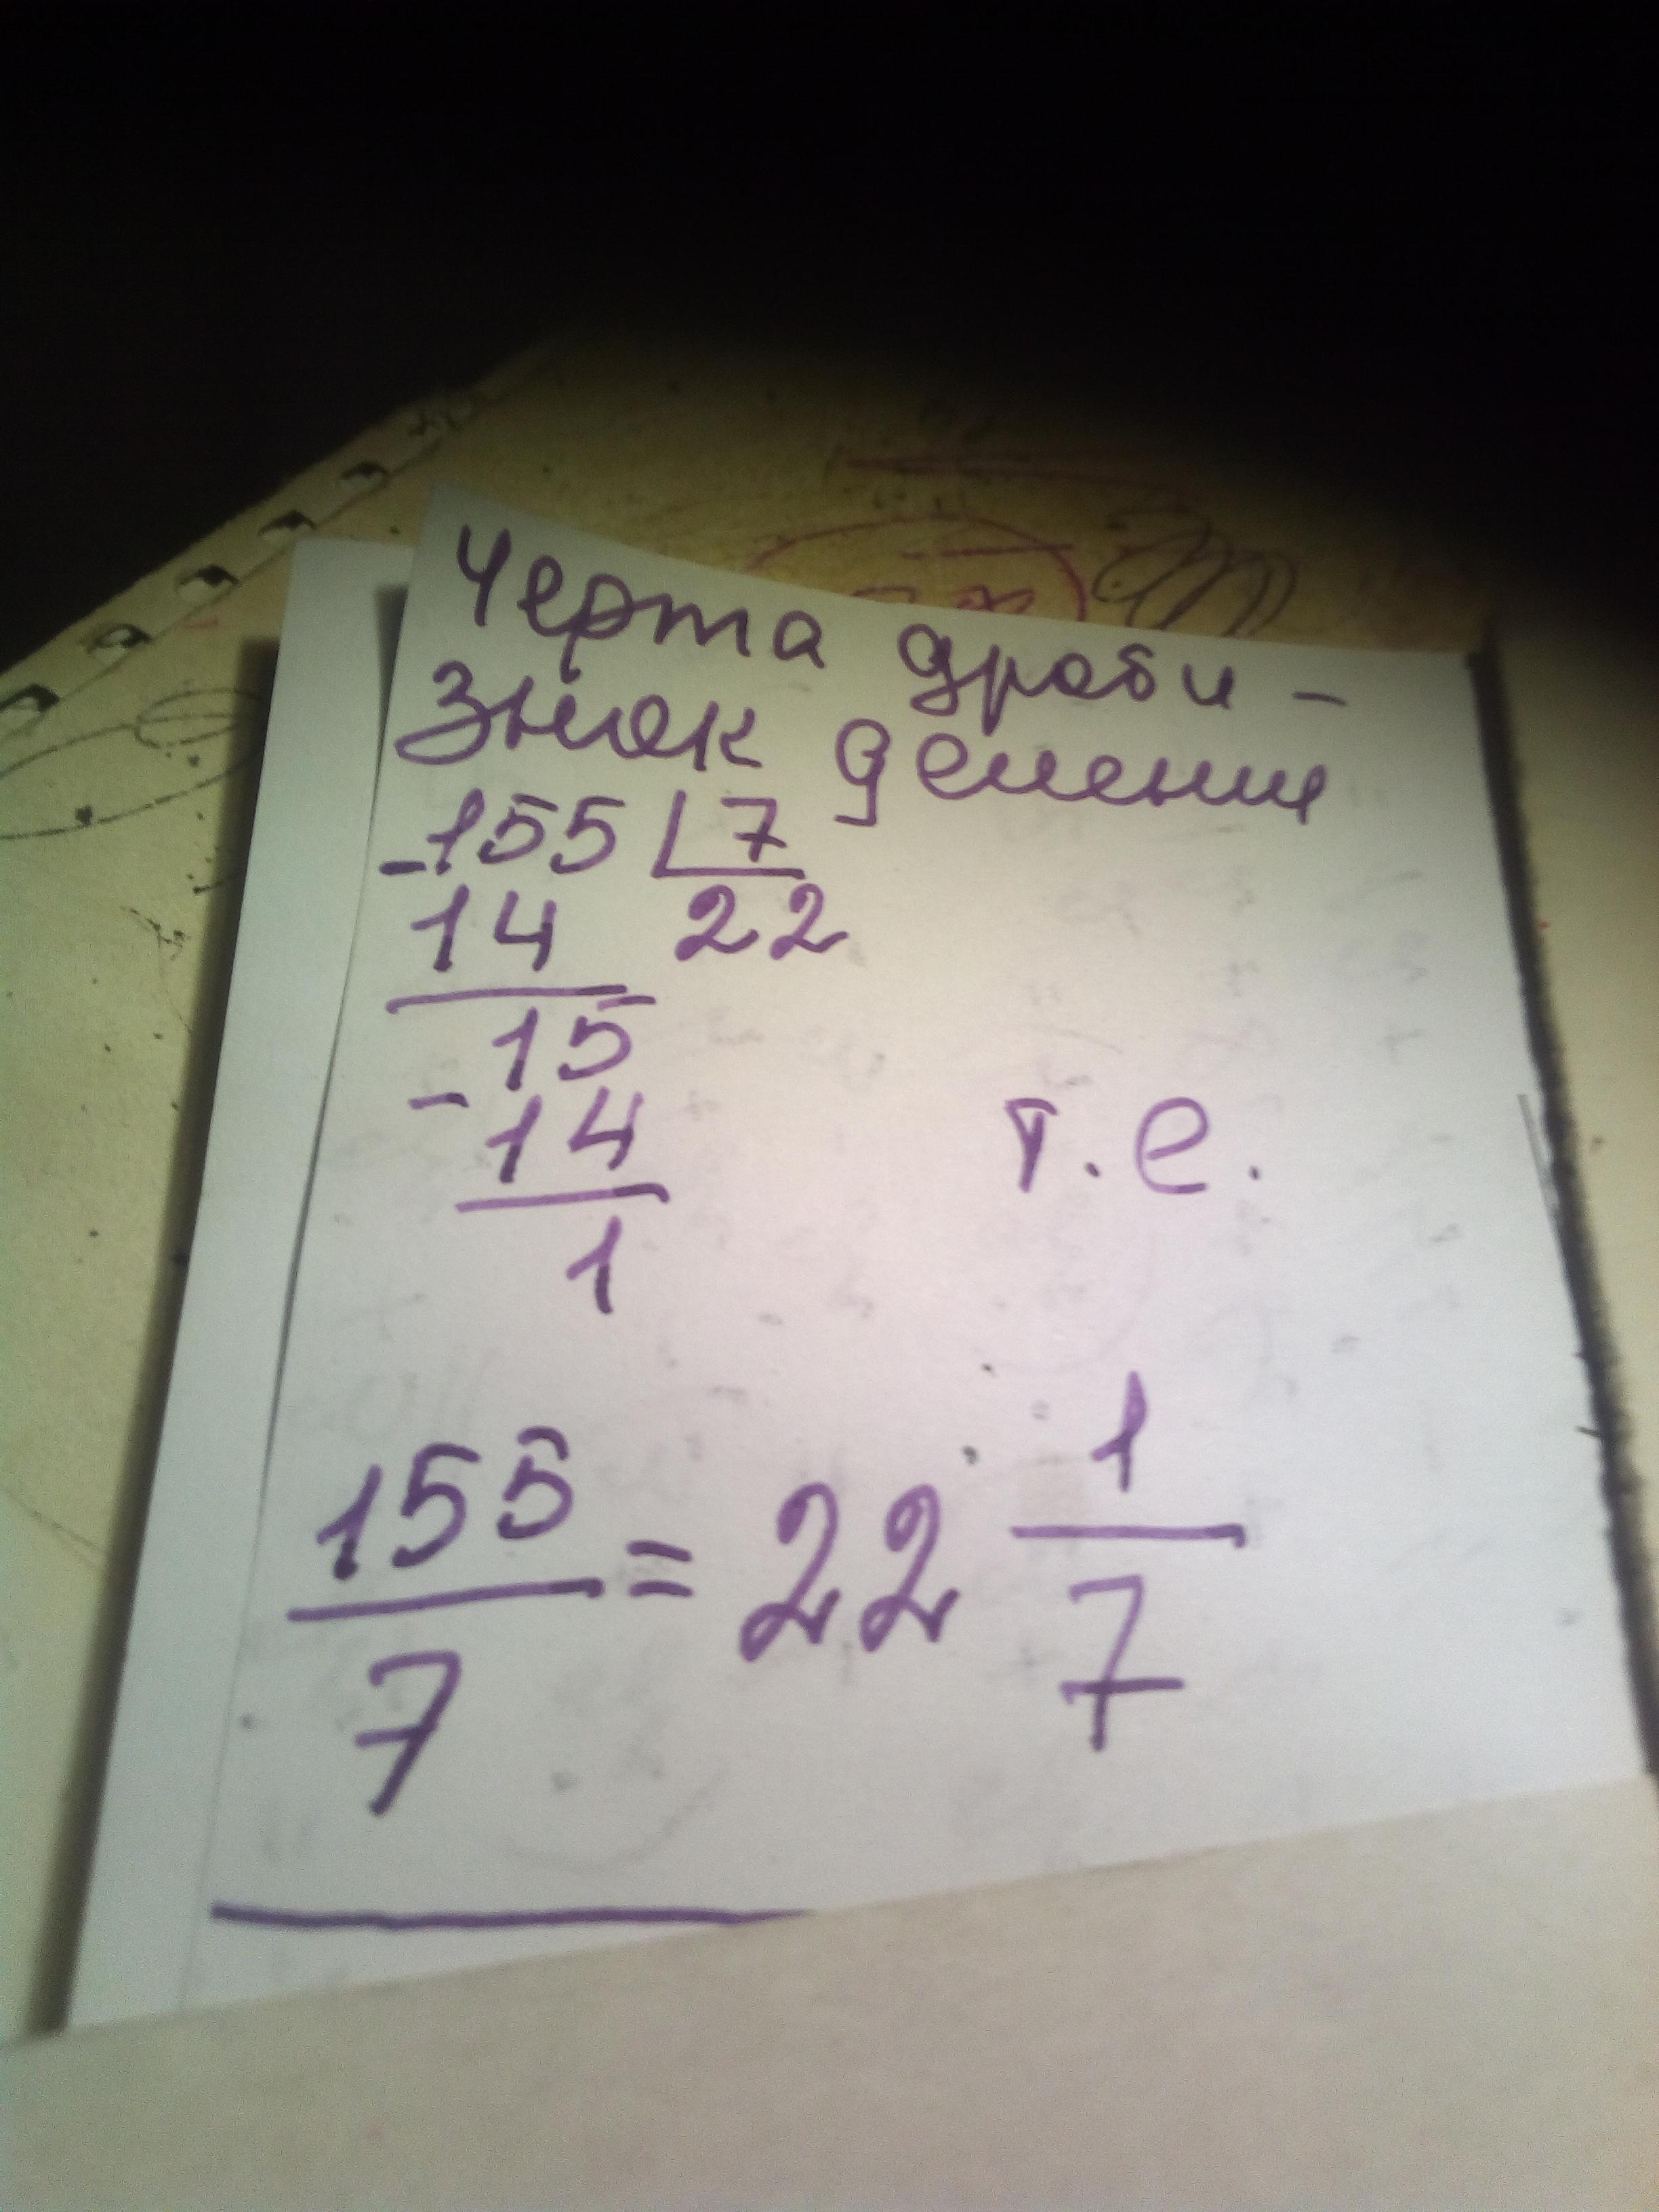 Черта дроби –
Знак деления
-155 7
14 22
15
- 14
1
т.е.
155/7 = 22 1/7